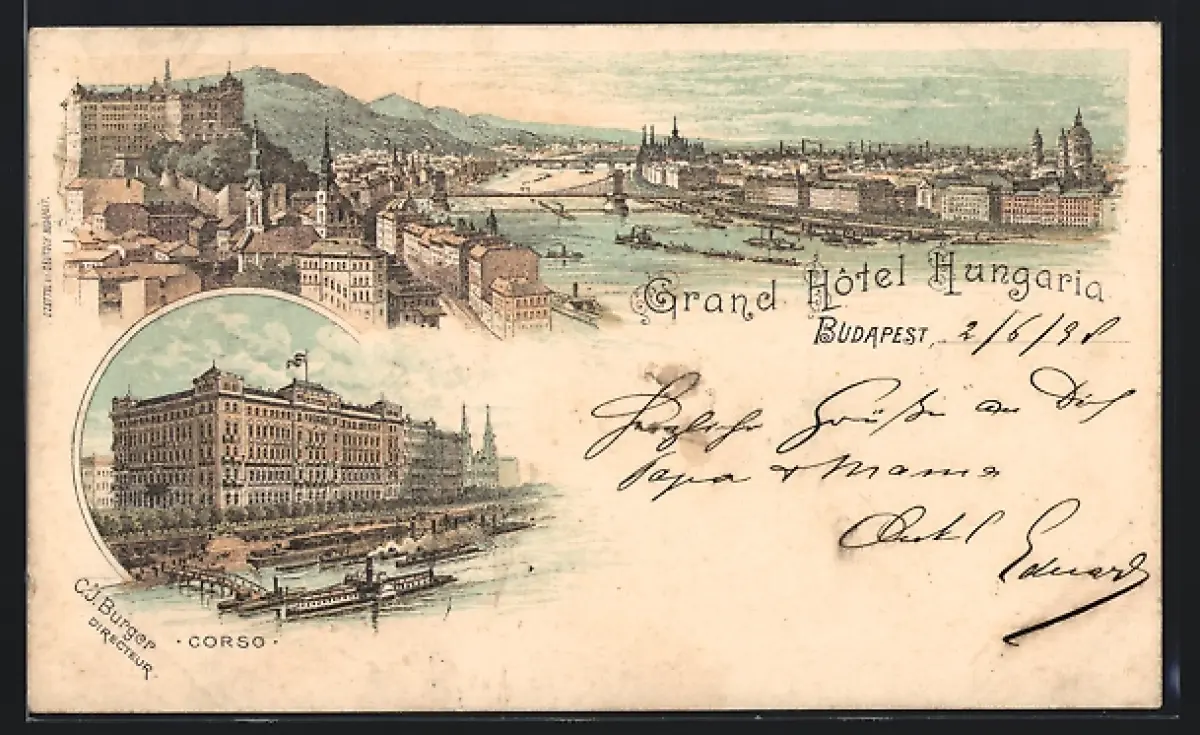 Grand Hôtel Hungaria
BUDAPEST, 2/6/98
Herzliche Grüße an Dich
Papa & Mama
Onkel Eduard
C.J. Burger
DIRECTEUR.
· CORSO ·